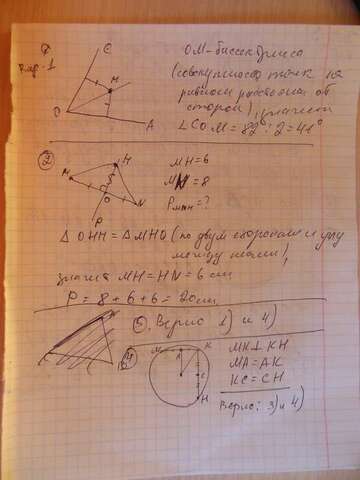 ①
Вар-1
C
M
O
A
OM-биссектриса
(совокупность точек на
равном расстоянии от
сторон), значит
∠COM = 82° : 2 = 41°
②
H
M
O
N
P
MH=6
MN=8
Pмнн=?
△ OHH = △MHO (по двум сторонам и углу
между ними),
значит MH = HN = 6 см
P = 8 + 6 + 6 = 20 см
③. Верно 1) и 4)
④
M
A
K
C
H
MK⊥KH
MA=AK
KC=CH
Верно: 3) и 4)